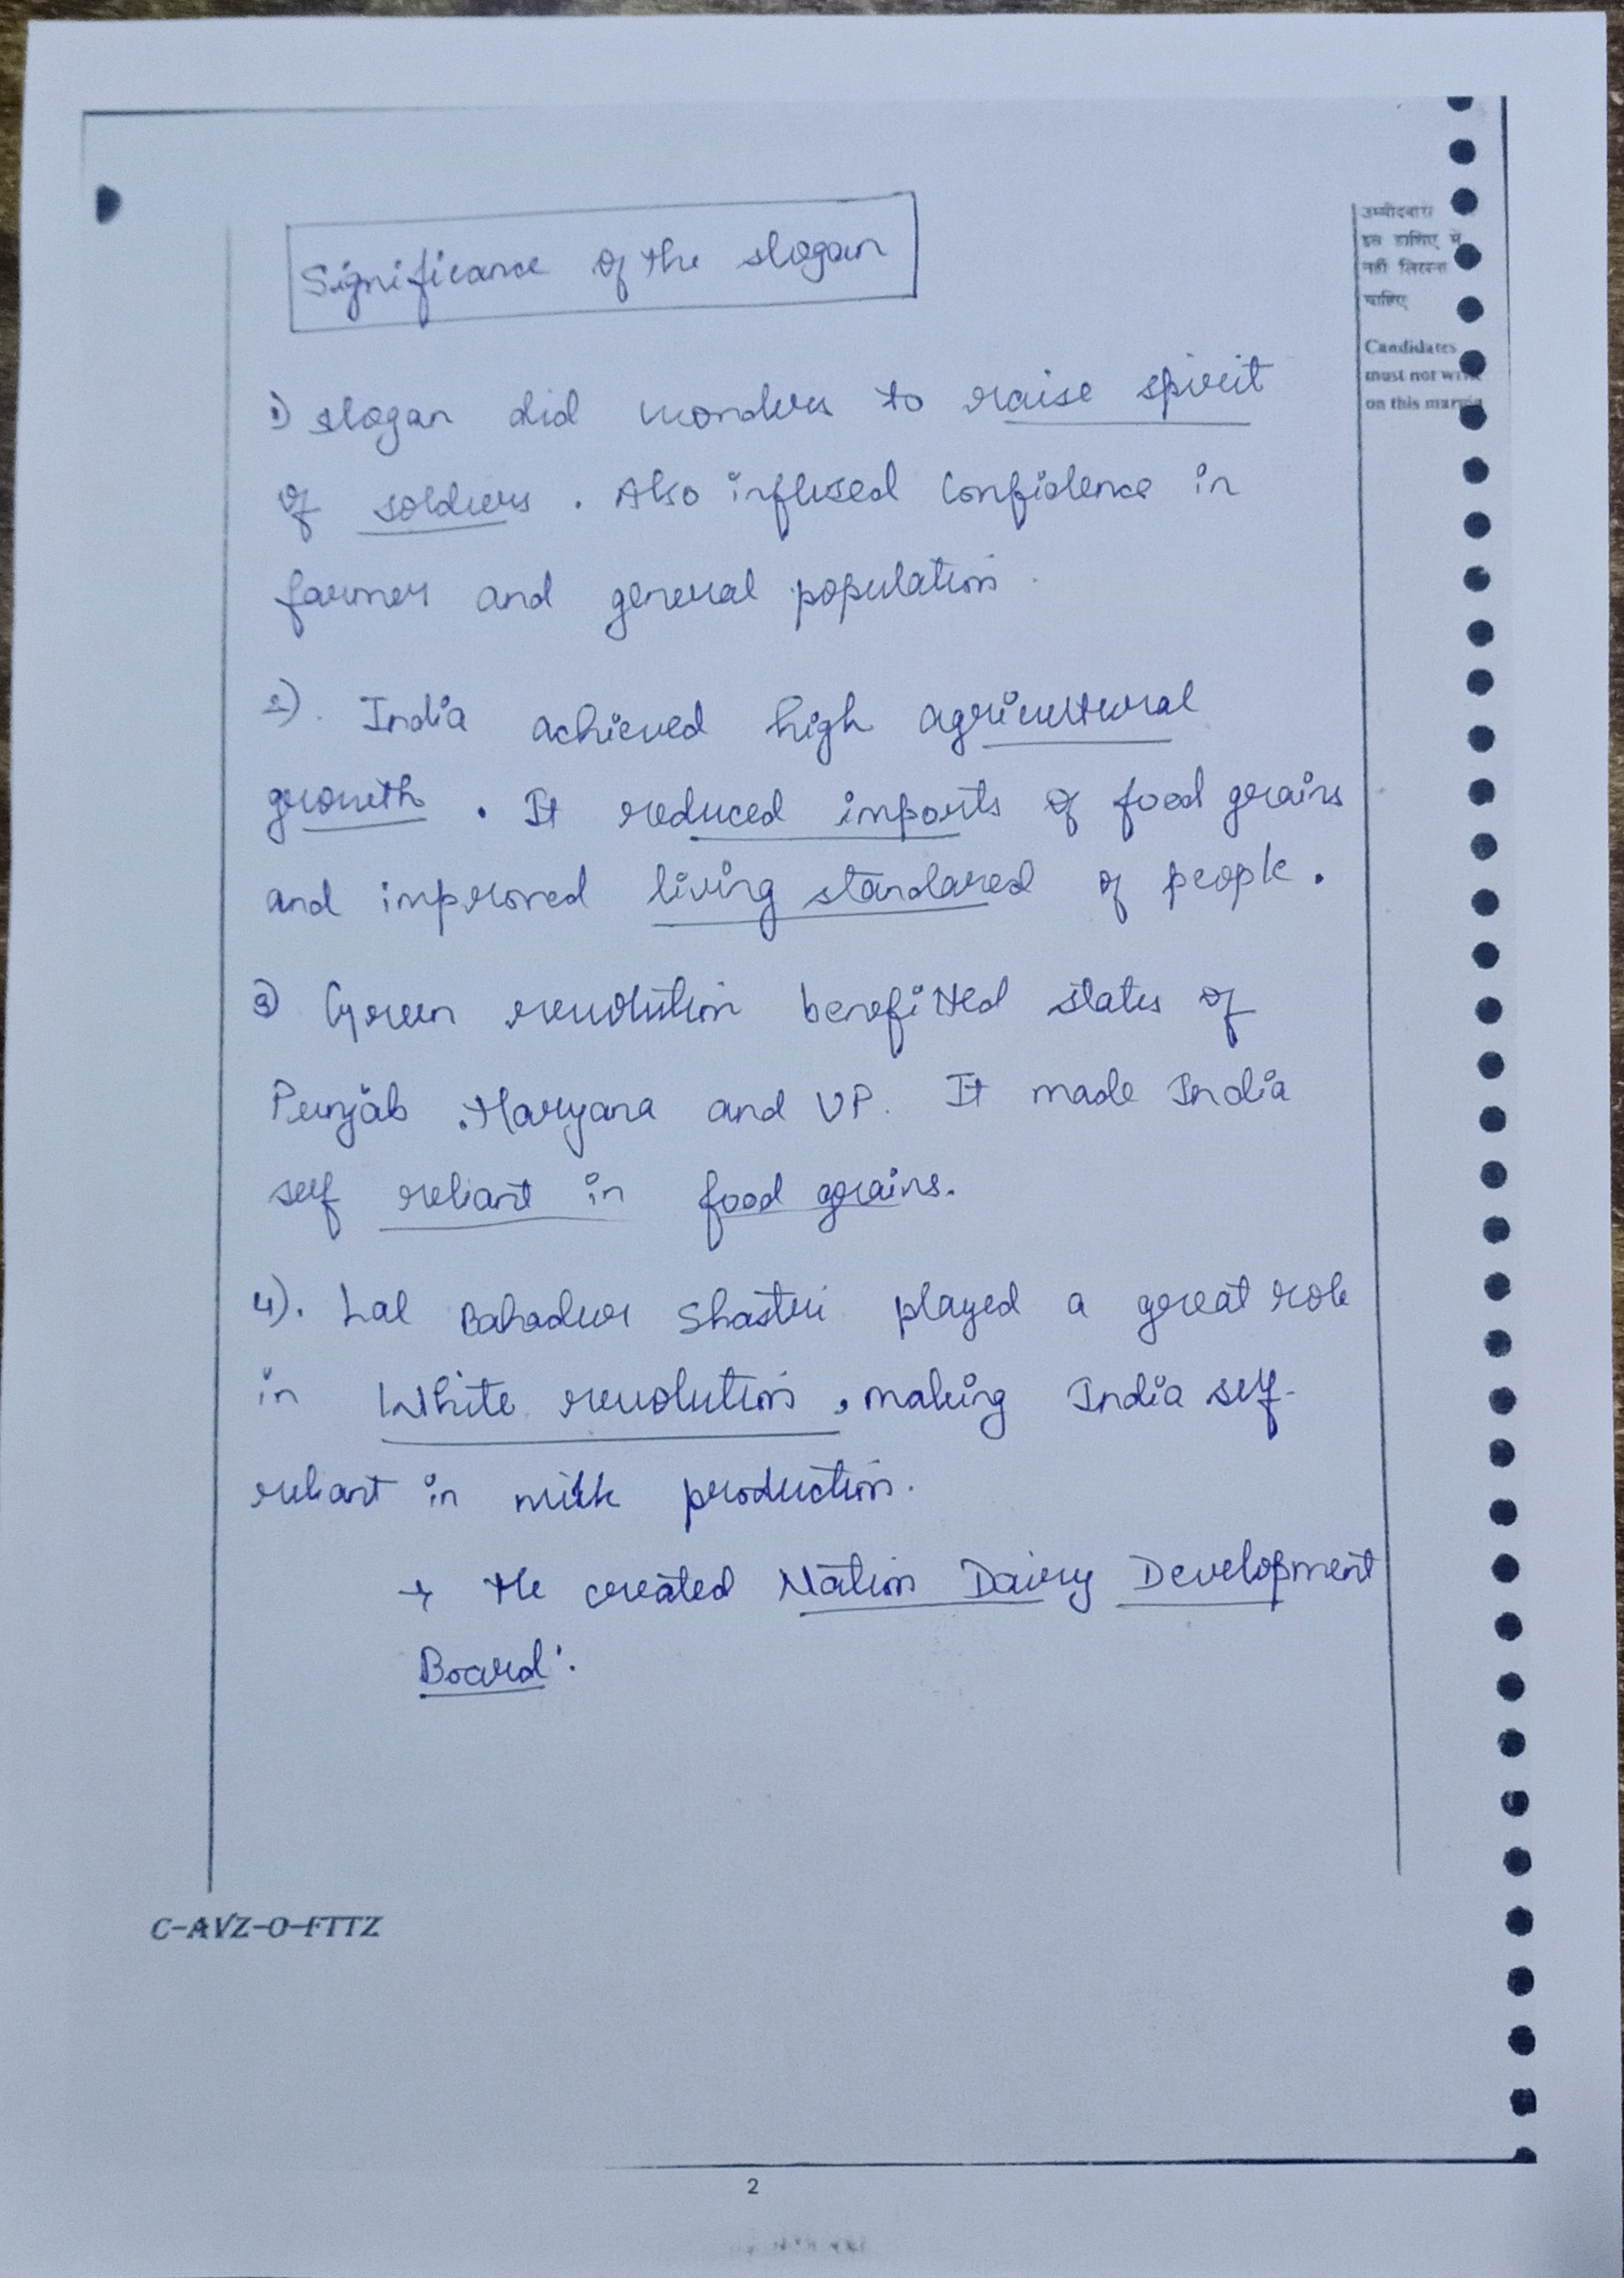 Significance of the slogan
उम्मीदवारों
इस हाशिए में
नहीं लिखना
चाहिए
Candidates
must not write
on this margin
1) slogan did wonders to raise spirit
of soldiers . Also infused confidence in
farmers and general population .
2). India achieved high agricultural
growth . It reduced imports of food grains
and improved living standared of people .
3) Green revolution benefitted states of
Punjab , Haryana and UP. It made India
self reliant in food grains.
4). Lal Bahadur Shastri played a great role
in White revolution , making India self-
reliant in milk production.
→ He created Nation Dairy Development
Board'.
C-AVZ-O-FTTZ
2